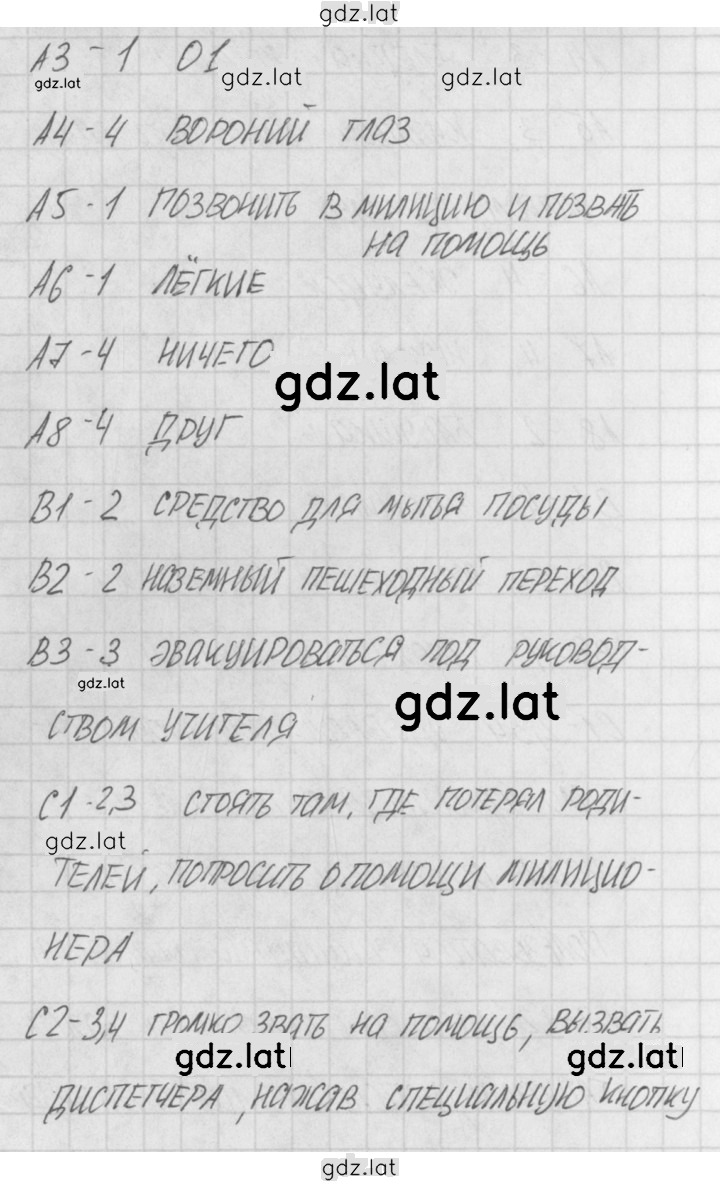 gdz.lat
А3 - 1 01
gdz.lat gdz.lat gdz.lat
А4 - 4 ВОРОНИЙ ГЛАЗ
А5 - 1 ПОЗВОНИТЬ В МИЛИЦИЮ И ПОЗВАТЬ
НА ПОМОЩЬ
А6 - 1 ЛЁГКИЕ
А7 - 4 НИЧЕГО
gdz.lat
А8 - 4 ДРУГ
В1 - 2 СРЕДСТВО ДЛЯ МЫТЬЯ ПОСУДЫ
В2 - 2 НАЗЕМНЫЙ ПЕШЕХОДНЫЙ ПЕРЕХОД
В3 - 3 ЭВАКУИРОВАТЬСЯ ПОД РУКОВОД-
gdz.lat gdz.lat
СТВОМ УЧИТЕЛЯ
С1 - 2,3 СТОЯТЬ ТАМ, ГДЕ ПОТЕРЯЛ РОДИ-
gdz.lat
ТЕЛЕЙ, ПОПРОСИТЬ О ПОМОЩИ МИЛИЦИО-
НЕРА
С2 - 3,4 ГРОМКО ЗВАТЬ НА ПОМОЩЬ, ВЫЗВАТЬ
gdz.lat gdz.lat
ДИСПЕТЧЕРА, НАЖАВ СПЕЦИАЛЬНУЮ КНОПКУ
gdz.lat